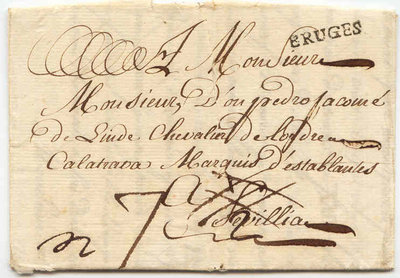 BRUGES
A Monsieur
Monsieur D'on pedro Jacome
de Linde Chevalier de l'ordre
Calatrava Marquis d'establantes
Sevillia